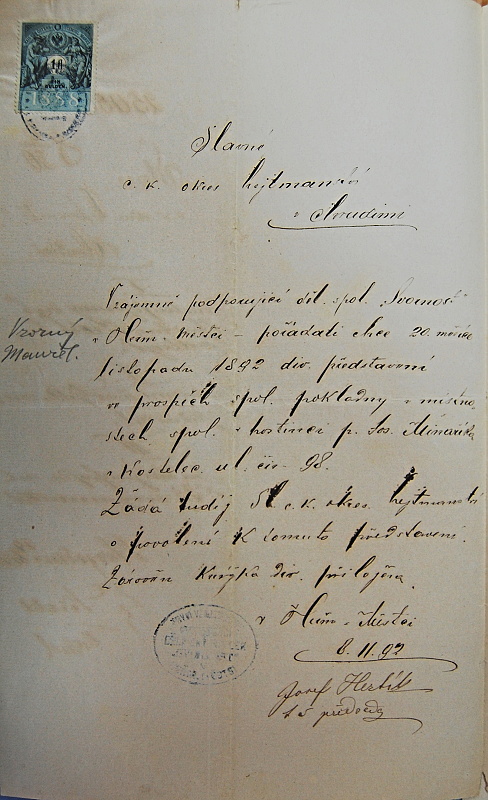 Slavné
c. k. okres hejtmanství
v Chrudimi
Vzájemně podporující děl. spol. Svornost
v Heřm. Městci – pořádati chce 20. měsíce
listopadu 1892 div. představení
ve prospěch spol. pokladny v místno-
stech spol. v hostinci p. Jos. Minaříka
v Kostelec. ul. čís. 98.
Žádá tudíž Sl. c. k. okres. hejtmanství
o povolení k tomuto představení.
Zároveň kus div. přiložen.
V Heřm. Městci
8. 11. 92
Josef
t. č. předseda
Vzorný